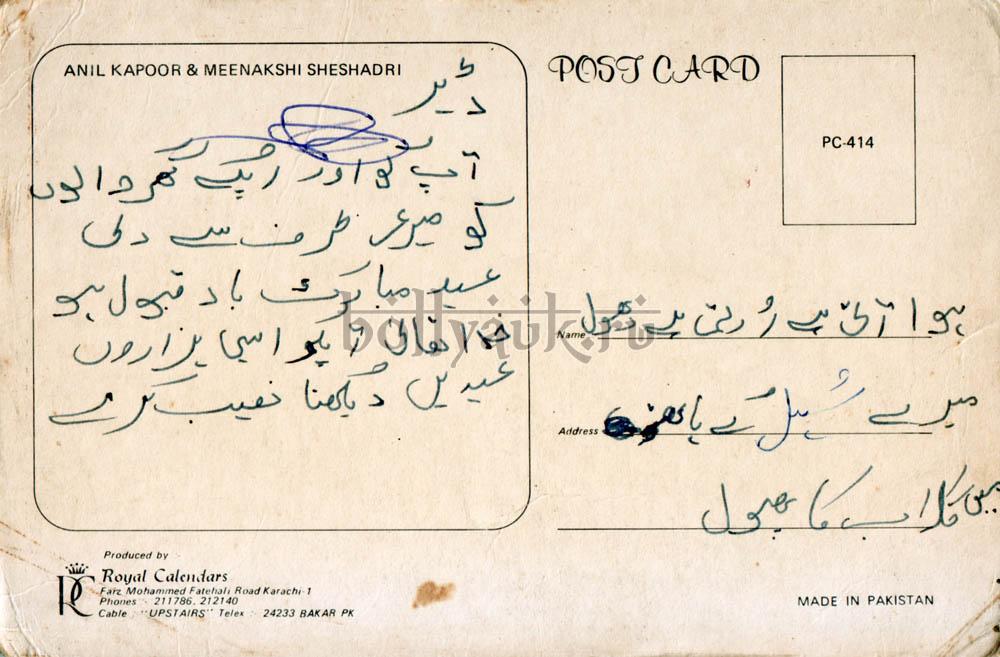 ANIL KAPOOR & MEENAKSHI SHESHADRI
ڈیر
آپ کو اور آپکے گھر والوں
کو میری طرف سے دلی
عید مبارک باد قبول ہو
خدا تعالیٰ آپکو ایسی ہزاروں
عیدیں دیکھنا نصیب کرے
Produced by
Royal Calendars
Farz Mohammed Fatehali Road Karachi-1
Phones :- 211786, 212140
Cable :- "UPSTAIRS" Telex :- 24233 BAKAR PK
POST CARD
PC-414
Name ہوا آتی ہے اُڑتی ہے دھول
Address میرے سہیل کے ہاتھ
میں گلاب کا پھول
MADE IN PAKISTAN
bollywood.nu